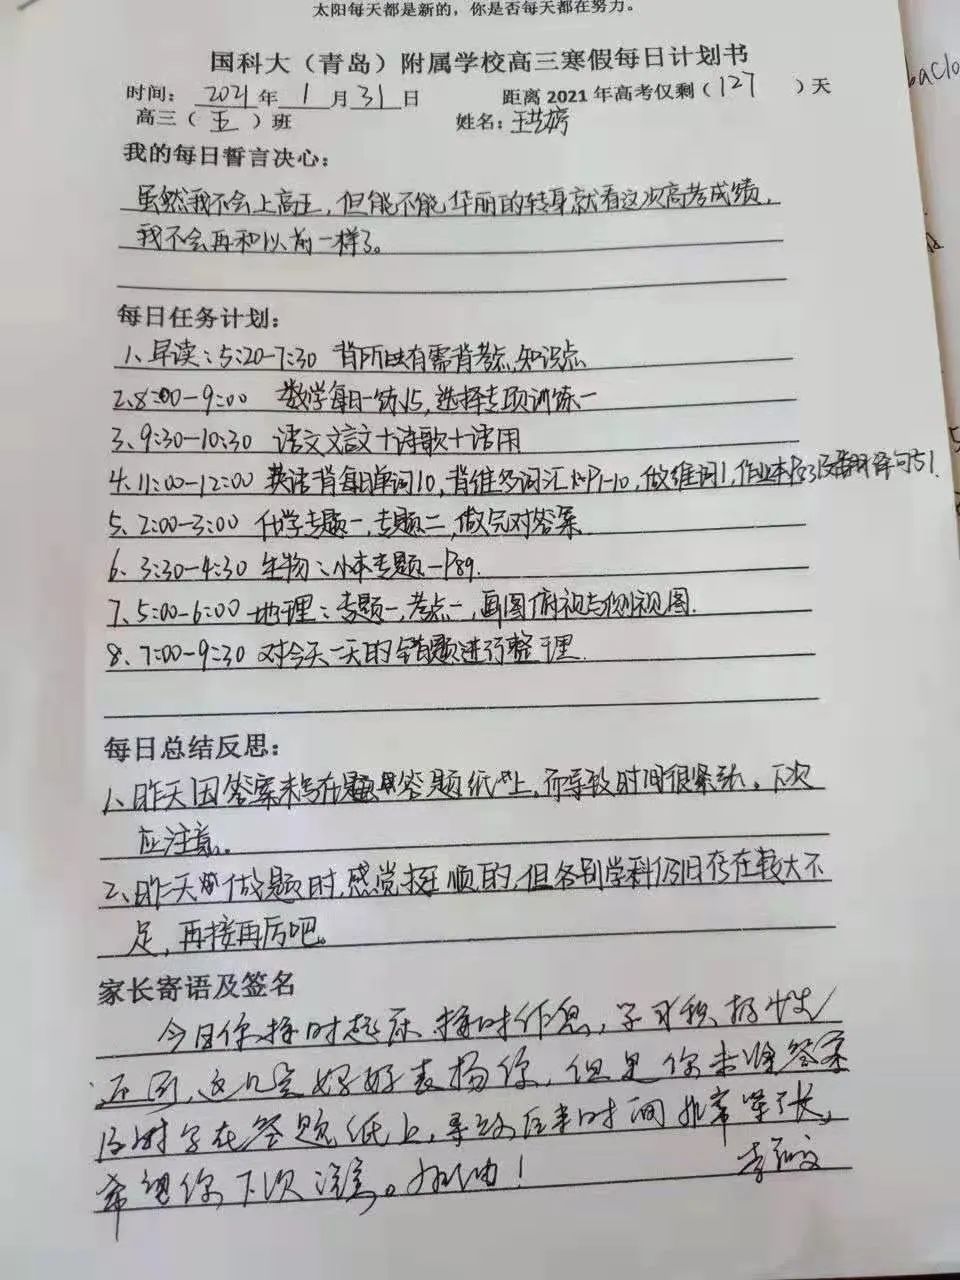 太阳每天都是新的，你是否每天都在努力。
国科大（青岛）附属学校高三寒假每日计划书
时间： 2021 年 1 月 31 日 距离 2021 年高考仅剩（127 ）天
高三（五）班 姓名：王艺婷
我的每日誓言决心：
虽然我不会上高五，但能不能华丽的转身就看这次高考成绩，
我不会再和以前一样了。
每日任务计划：
1、早读：5:20-7:30 背所有需背考点,知识点
2、8:00-9:00 数学每日一练15，选择专项训练一
3、9:30-10:30 语文文言文+诗歌+语用
4、11:00-12:00 英语背每日单词10，背维多词汇P1-10，做维词1，作业本P63及翻译句子1.
5、2:00-3:00 化学专题一，专题二，做完对答案
6、3:30-4:30 生物：小本专题一P89.
7、5:00-6:00 地理：专题一,考点一，画图俯视与侧视图.
8、7:00-9:30 对今天一天的错题进行整理.
每日总结反思：
1、昨天因答案未写在答题纸上，而导致时间很紧张。下次
应注意。
2、昨天做题时，感觉挺顺的，但各别学科仍旧存在较大不
足，再接再厉吧。
家长寄语及签名
今日你按时起床、按时作息，学习积极性
还可，这几定好好表扬你，但是你未将答案
及时写在答题纸上，导致后来时间非常紧张，
希望你下次注意。加油！